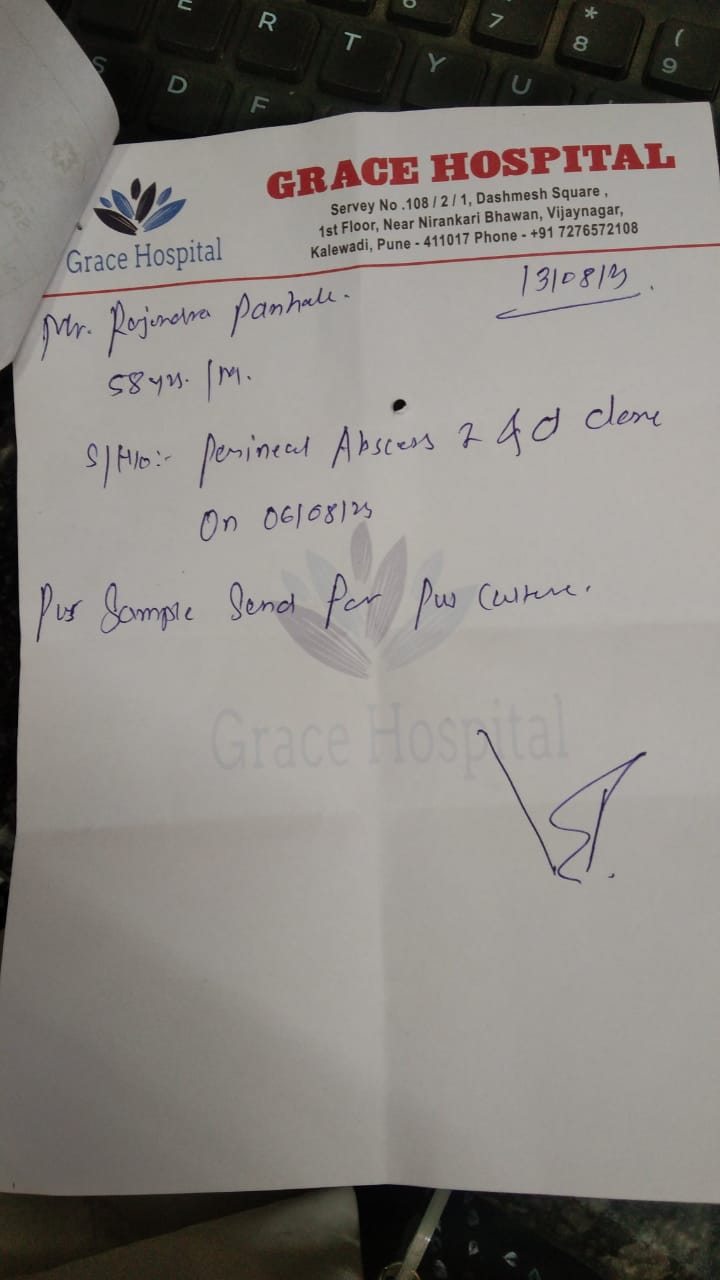 E R T Y U 7 * 8 ( 9
S D F
GRACE HOSPITAL
Servey No .108 / 2 / 1, Dashmesh Square ,
1st Floor, Near Nirankari Bhawan, Vijaynagar,
Kalewadi, Pune - 411017 Phone - +91 7276572108
Grace Hospital
13/08/23.
Mr. Rajendra Panhale.
58 yrs. / M.
S/H/o:- Perineal Abscess I & d done
On 06/08/23
Pus Sample Send for Pus Culture.
Grace Hospital